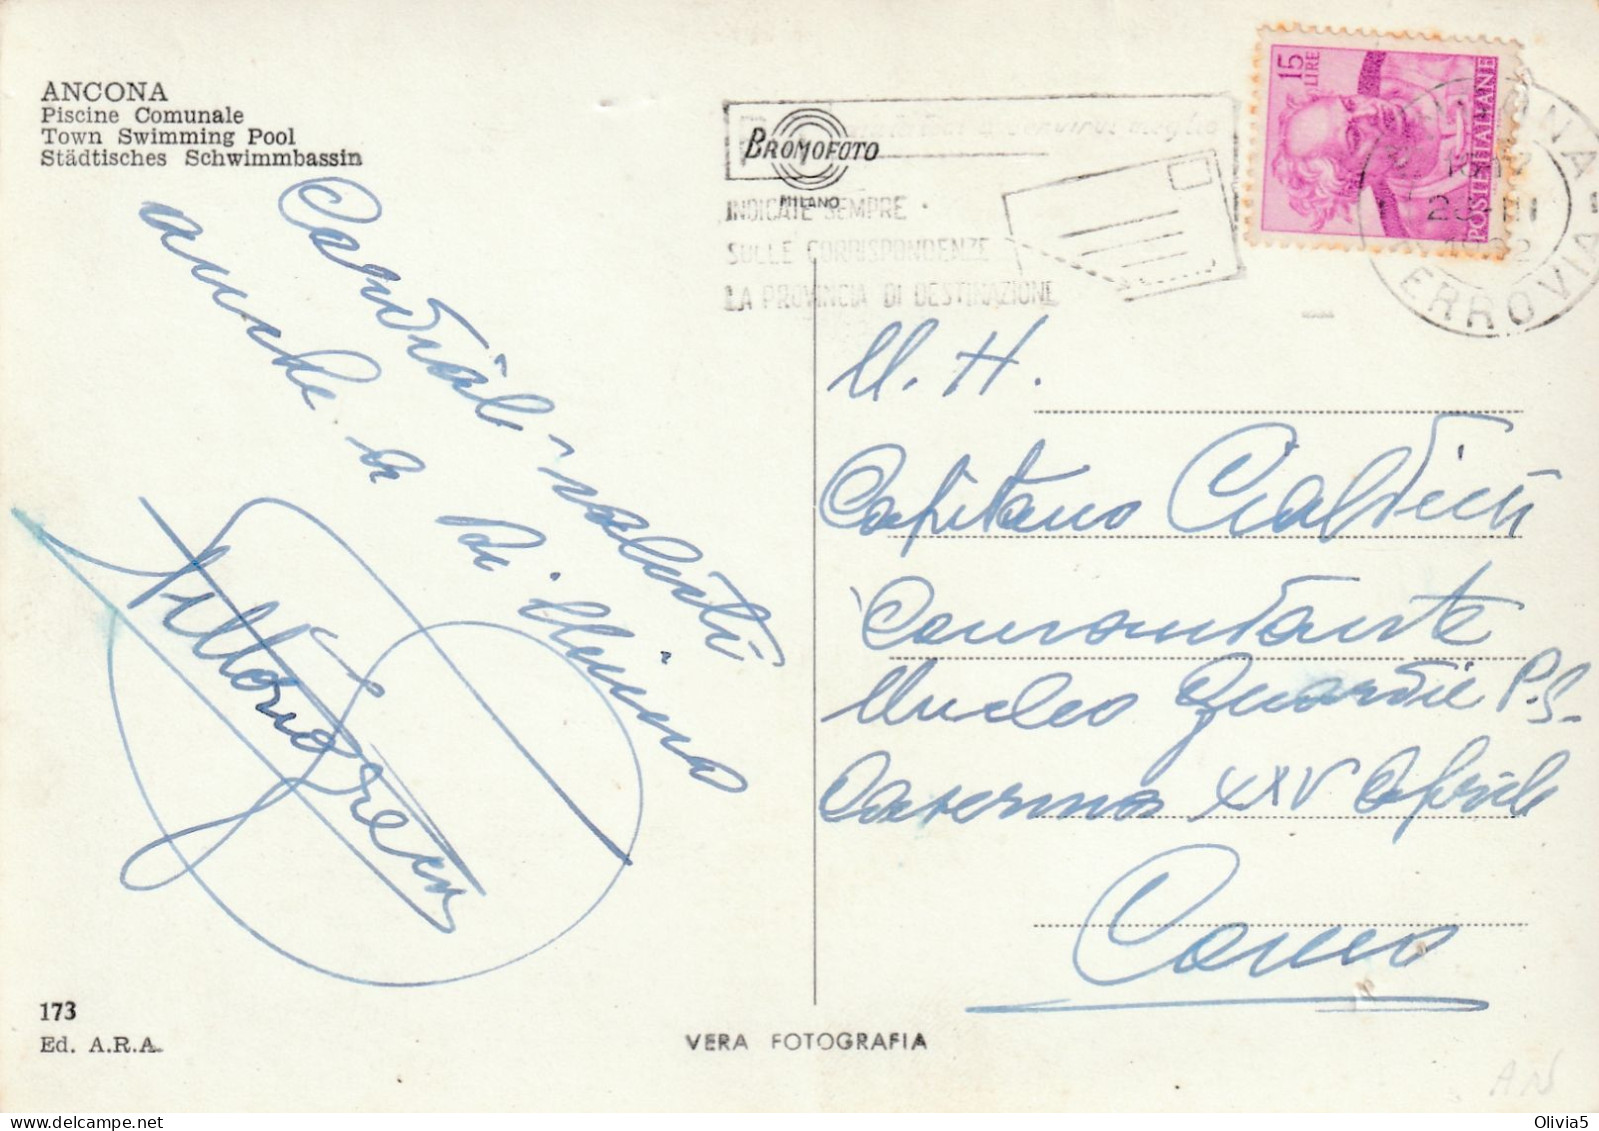 ANCONA
Piscine Comunale
Town Swimming Pool
Städtisches Schwimmbassin
Cordiali saluti
anche a
Vittorio
173
Ed. A.R.A.
BROMOFOTO
MILANO
INDICATE SEMPRE
SULLE CORRISPONDENZE
LA PROVINCIA DI DESTINAZIONE
15
LIRE
POSTE ITALIANE
FERROVIA
M. H.
Capitano Cialdini
Comandante
Nucleo Guardie P.S.
Caserma XXV Aprile
Como
VERA FOTOGRAFIA
AN
Olivia5